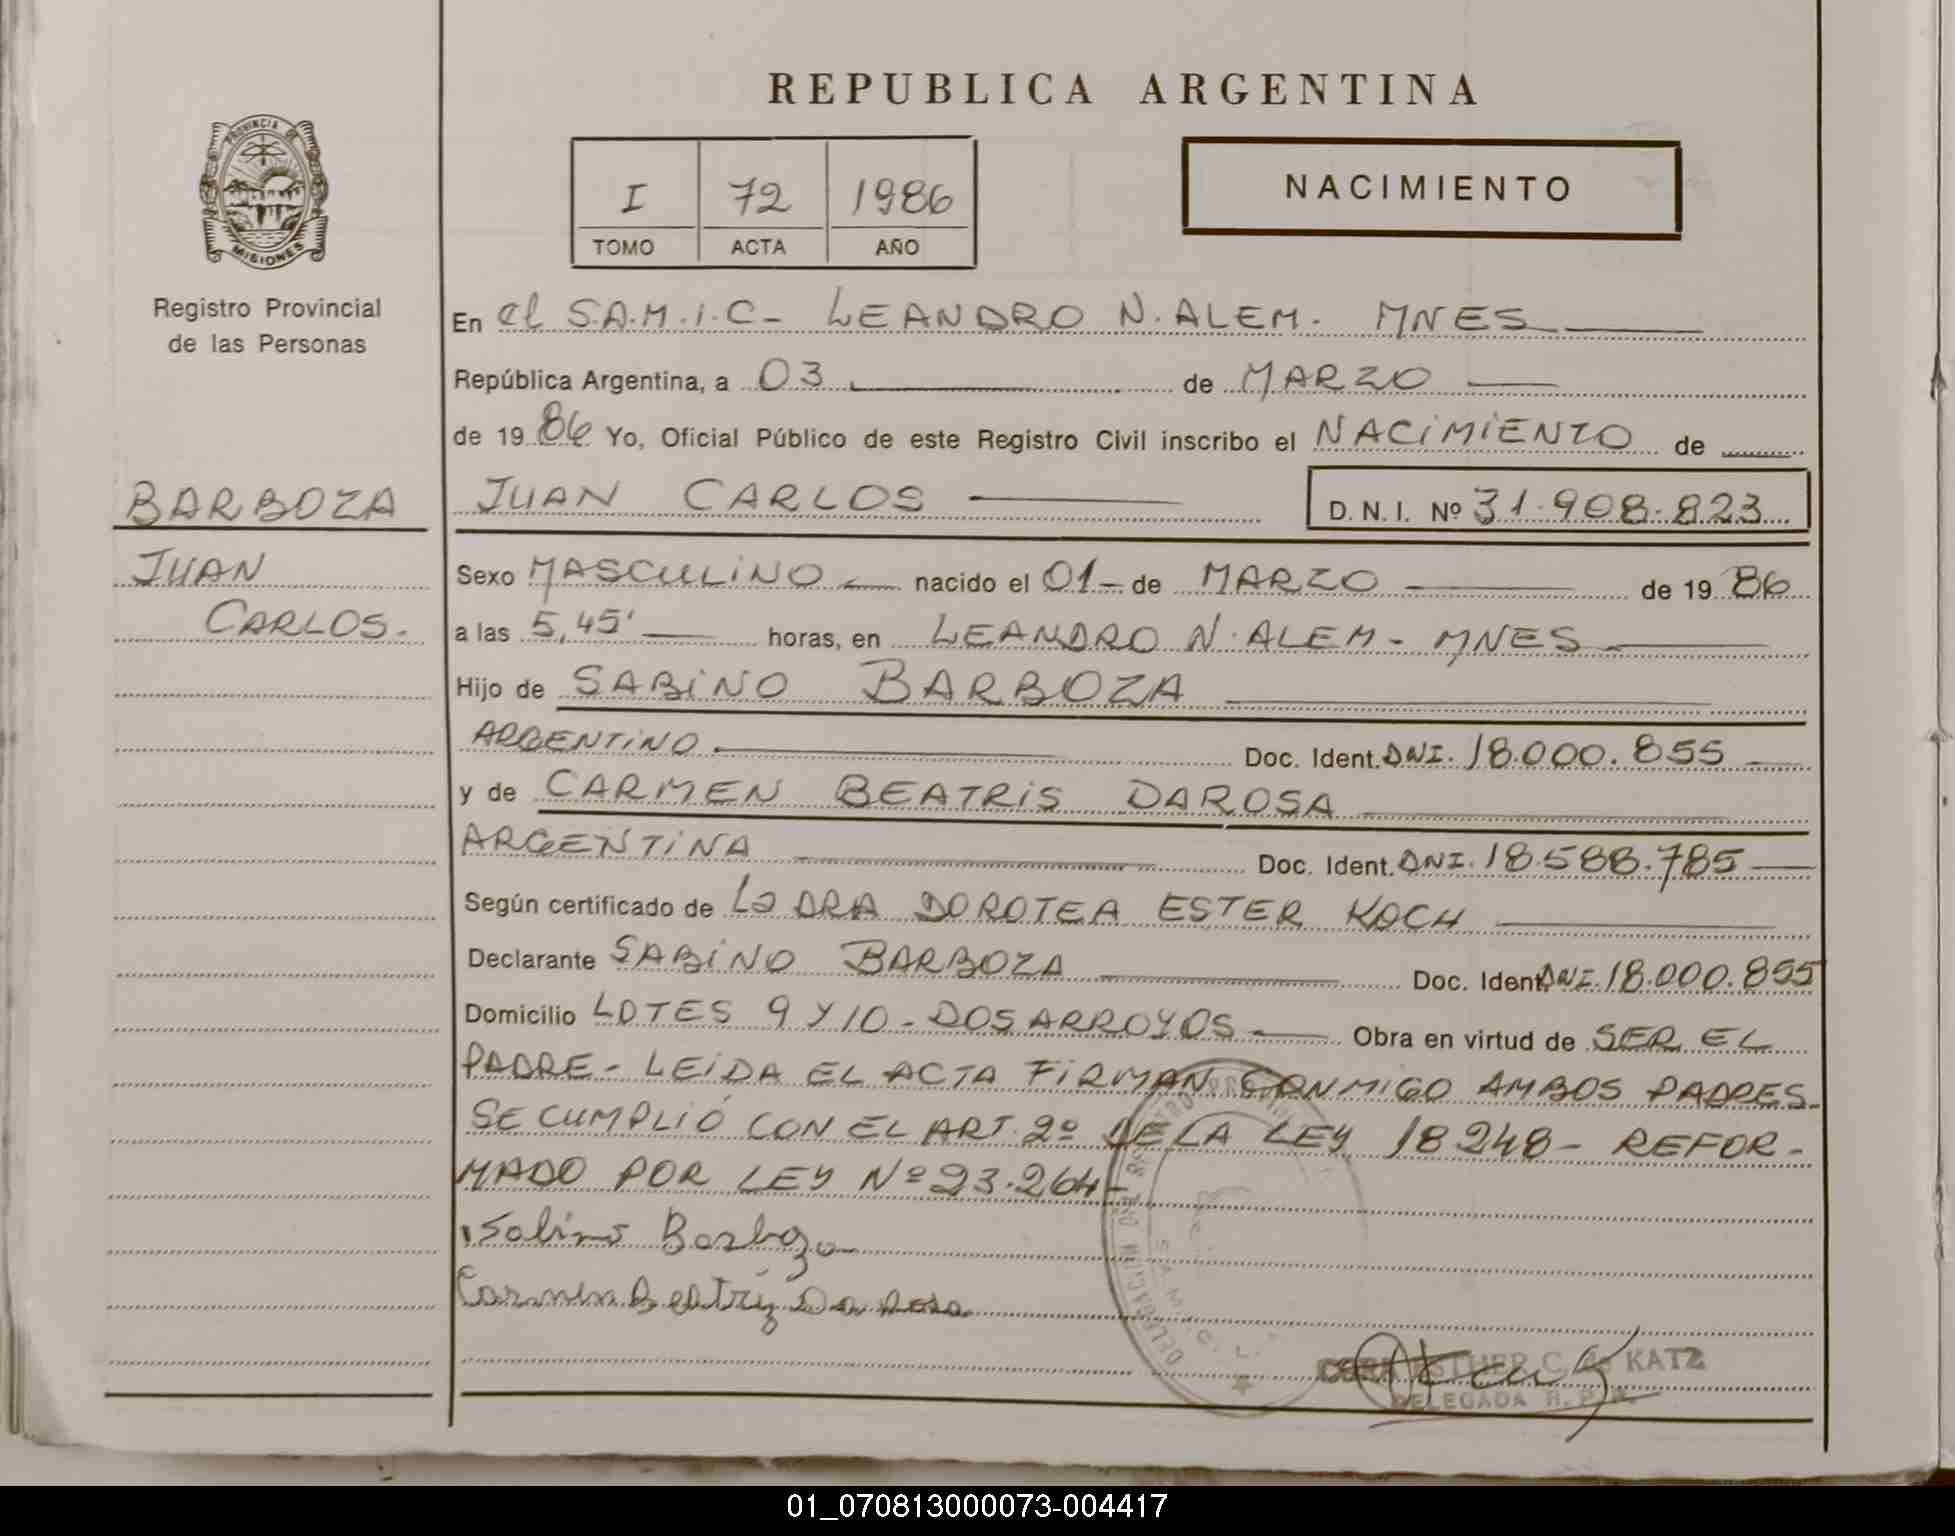 REPUBLICA ARGENTINA
PROVINCIA DE
MISIONES
Registro Provincial
de las Personas
I 72 1986
TOMO ACTA AÑO
NACIMIENTO
En el S.A.M.I.C- LEANDRO N. ALEM. MNES
República Argentina, a 03 de MARZO
de 1986 Yo, Oficial Público de este Registro Civil inscribo el NACIMIENTO de
BARBOZA
JUAN CARLOS.
JUAN CARLOS D. N. I. Nº 31.908.823
Sexo MASCULINO nacido el 01- de MARZO de 1986
a las 5,45' horas, en LEANDRO N. ALEM - MNES
Hijo de SABINO BARBOZA
ARGENTINO Doc. Ident. DNI. 18.000.855
y de CARMEN BEATRIS DAROSA
ARGENTINA Doc. Ident. DNI. 18.588.785
Según certificado de La DRA DOROTEA ESTER KOCH
Declarante SABINO BARBOZA Doc. Ident DNI. 18.000.855
Domicilio LOTES 9 Y 10 - DOS ARROYOS Obra en virtud de SER EL
PADRE - LEIDA EL ACTA FIRMAN CONMIGO AMBOS PADRES.
SE CUMPLIÓ CON EL ART. 2º DE LA LEY 18248 - REFOR-
MADO POR LEY Nº 23.264-
Sabino Barboza
Carmen Beatriz Da Rosa
ESTHER C. de KATZ
DELEGADA R. P. P.
01_070813000073-004417